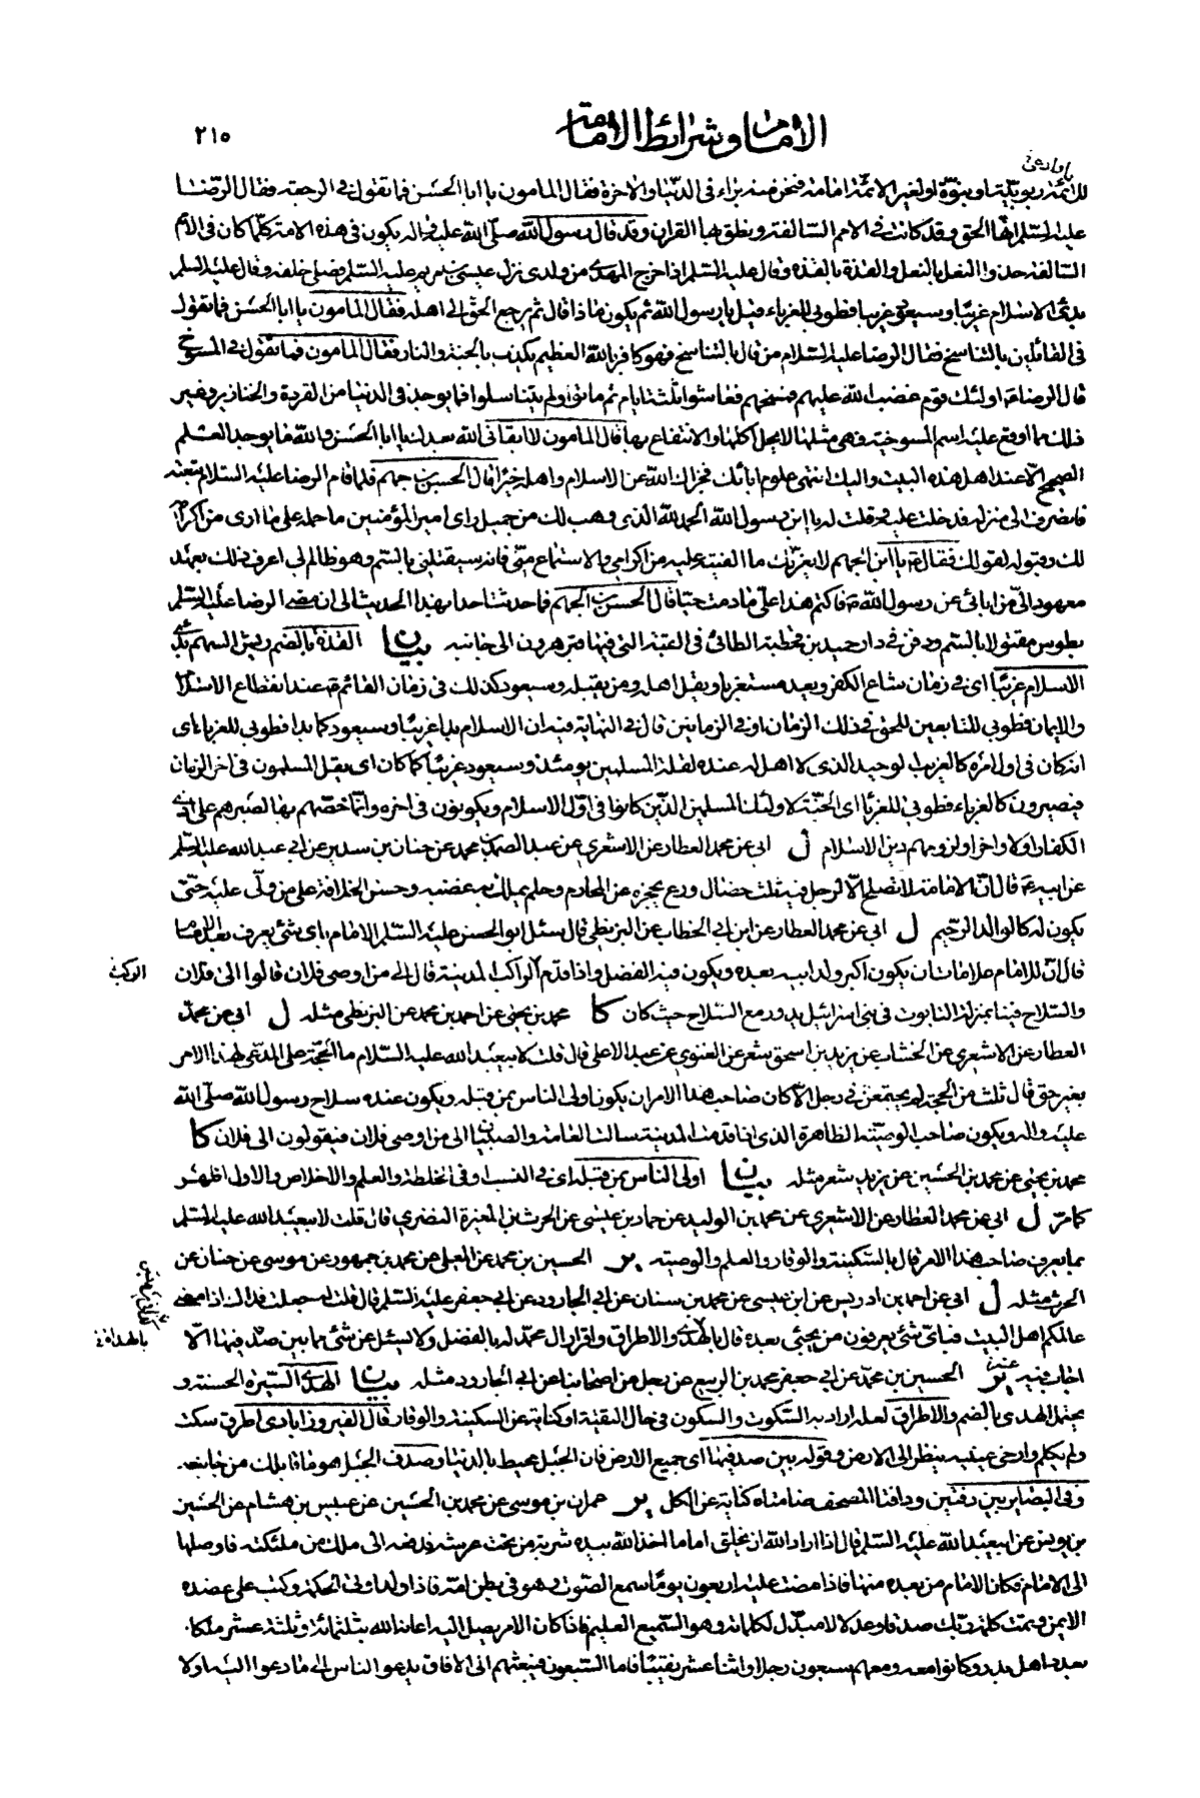 ٢١٥ الامام وشرائط الامامة
او ادعى
للائمة ربوبية او نبوة او لغير الائمة امامة فنحن منه براء في الدنيا والاخرة فقال المامون يا ابا الحسن فما تقول في الرجعة فقال الرضا
عليه السلم انها الحق وقد كانت في الامم السالفة ونطق بها القران وقد قال رسول الله صلى الله عليه واله يكون في هذه الامة كلما كان في الامم
السالفة حذو النعل بالنعل والقذة بالقذة وقال عليه السلم اذا خرج المهدي من ولدي نزل عيسى بن مريم عليه السلم فصلى خلفه وقال عليه السلم
بدئ الاسلام غريبا وسيعود غريبا فطوبى للغرباء قيل يا رسول الله ثم يكون ماذا قال ثم يرجع الحق الى اهله فقال المامون يا ابا الحسن فما تقول
في القائلين بالتناسخ فقال الرضا عليه السلام من قال بالتناسخ فهو كافر بالله العظيم يكذب بالجنة والنار فقال المامون فما تقول في المسوخ
قال الرضا ع اولئك قوم غضب الله عليهم فمسخهم فعاشوا ثلثة ايام ثم ماتوا ولم يتناسلوا فما يوجد في الدنيا من القردة والخنازير وغير
ذلك مما اوقع عليه اسم المسوخية فهي مثلها لا يحل اكلها والانتفاع بها قال المامون لا ابقاني الله بعدك يا ابا الحسن والله ما يوجد العلم
الصحيح الا عند اهل هذه البيت واليك انتهى علوم ابائك فجزاك الله عن الاسلام واهله خيرا قال الحسن بن جهم فلما قام الرضا عليه السلام تبعته
فانصرف الى منزله فدخلت عليه وقلت له يا ابن رسول الله الحمد لله الذي وهب لك من جميل راى امير المؤمنين ما حمله على ما ارى من اكرامه
لك وقبوله لقولك فقال ع يا ابن الجهم لا يغرنك ما الفيته عليه من اكرامي والاستماع مني فانه سيقتلني بالسم وهو ظالم لي اعرف ذلك بعهد
معهود الي من ابائي عن رسول الله ص فاكتم هذا علي ما دمت حيا قال الحسن بن الجهم فما حدثت احدا بهذا الحديث الى ان مضى الرضا عليه السلم
بطوس مقتولا بالسم ودفن في دار حميد بن قحطبة الطائي في القبة التي فيها قبر هرون الى جانبه بيان القذة بالضم ريش السهم بدئ
الاسلام غريبا اي في زمان شاع الكفر ويعد مستغربا ويقل اهله ومن يقبله وسيعود كذلك في زمان القائم ع عند انقطاع الاسلام
والايمان فطوبى للتابعين للحق في ذلك الزمان او في الزمانين قال في النهاية فيه ان الاسلام بدا غريبا وسيعود كما بدا فطوبى للغرباء اي
انه كان في اول امره كالغريب الوحيد الذي لا اهل له عنده لقلة المسلمين يومئذ وسيعود غريبا كما كان اي يقل المسلمون في اخر الزمان
فيصيرون كالغرباء فطوبى للغرباء اي الجنة لاولئك المسلمين الذين كانوا في اول الاسلام ويكونون في اخره وانما خصهم بها لصبرهم على اذى
الكفار اولا واخرا ولزومهم دين الاسلام ل ابي عن محمد العطار عن الاشعري عن عبد الصمد بن محمد عن حنان بن سدير عن ابي عبد الله عليه السلم
عن ابيه ع قال ان الامامة لا تصلح الا لرجل فيه ثلث خصال ورع يحجزه عن المحارم وحلم يملك به غضبه وحسن الخلافة على من ولي عليه حتى
يكون له كالوالد الرحيم ل ابي عن محمد العطار عن ابن ابي الخطاب عن البزنطي قال سئل ابو الحسن عليه السلم الامام باي شئ يعرف بعد الامام
قال ان للامام علامات ان يكون اكبر ولد ابيه بعده ويكون فيه الفضل واذا قدم الراكب المدينة قال الى من اوصى فلان قالوا الى فلان
الركب
والسلاح فينا بمنزلة التابوت في بني اسرائيل يدور مع السلاح حيث كان كا محمد بن يحيى عن احمد بن محمد عن البزنطي مثله ل ابي عن محمد
العطار عن الاشعري عن الخشاب عن يزيد بن اسحق شعر عن الغنوي عن عبد الاعلى قال قلت لابيعبد الله عليه السلام ما الحجة على المدعي لهذا الامر
بغير حق قال ثلث من الحجة لم يجتمعن في رجل الا كان صاحب هذا الامر ان يكون اولى الناس بمن قبله ويكون عنده سلاح رسول الله صلى الله
عليه واله ويكون صاحب الوصية الظاهرة الذي اذا قدمت المدينة سالت العامة والصبيان الى من اوصى فلان فيقولون الى فلان كا
محمد بن يحيى عن محمد بن الحسين عن يزيد شعر مثله بيان اولى الناس بمن قبله اي في النسب او في الخلطة والعلم والاخلاص والاول اظهر
كامر ل ابي عن محمد العطار عن الاشعري عن محمد بن الوليد عن حماد بن عيسى عن الحرث بن المغيرة النضري قال قلت لابيعبد الله عليه السلم
بما يعرف صاحب هذا الامر قال بالسكينة والوقار والعلم والوصية ير الحسين بن محمد عن المعلى عن محمد بن جمهور عن موسى عن حنان عن
الحرث مثله ل ابي عن احمد بن ادريس عن ابن عيسى عن محمد بن سنان عن ابي الجارود عن ابي جعفر عليه السلم قال قلت له جعلت فداك اذا مضى
عالمكم اهل البيت فباي شئ يعرفون من يجيئ بعده قال بالهدى والاطراق واقرار ال محمد له بالفضل ولا يسئل عن شئ مما بين صدفيها الا
اجاب فيه ير الحسين بن محمد عن ابي جعفر محمد بن الربيع عن رجل من اصحابنا عن ابي الجارود مثله بيان الهدى السيرة الحسنة و
يحتمل الهدى بالضم والاطراق لعله اراد به السكوت والسكون في حال التقية او كناية عن السكينة والوقار قال الفيروزابادي اطرق سكت
ولم يتكلم وارخى عينيه ينظر الى الارض وقوله بين صدفيها اي جميع الارض فان الجبل محيط بالدنيا وصدف الجبل هو ما قابلك من جانبه
وفي البصائر بين دفتين ودفتا المصحف ضامتاه كناية عن الكل ير عمران بن موسى عن محمد بن الحسين عن عبيس بن هشام عن الحسين
بن يونس عن ابيعبد الله عليه السلم قال اذا اراد الله ان يخلق اماما اخذ الله بيده شربة من تحت عرشه فدفعه الى ملك من ملئكته فاوصلها
الى الامام فكان الامام من بعده منها فاذا مضت عليه اربعون يوما سمع الصوت وهو في بطن امه فاذا ولد اوتي الحكمة وكتب على عضده
الايمن وتمت كلمة ربك صدقا وعدلا لا مبدل لكلماته وهو السميع العليم فاذا كان الامر يصل اليه اعانه الله بثلثمائة وثلثة عشر ملكا
بعدد اهل بدر وكانوا معه ومعهم سبعون رجلا واثنا عشر نقيبا فاما السبعون فيبعثهم الى الافاق يدعو الناس الى ما دعوا اليه اولا